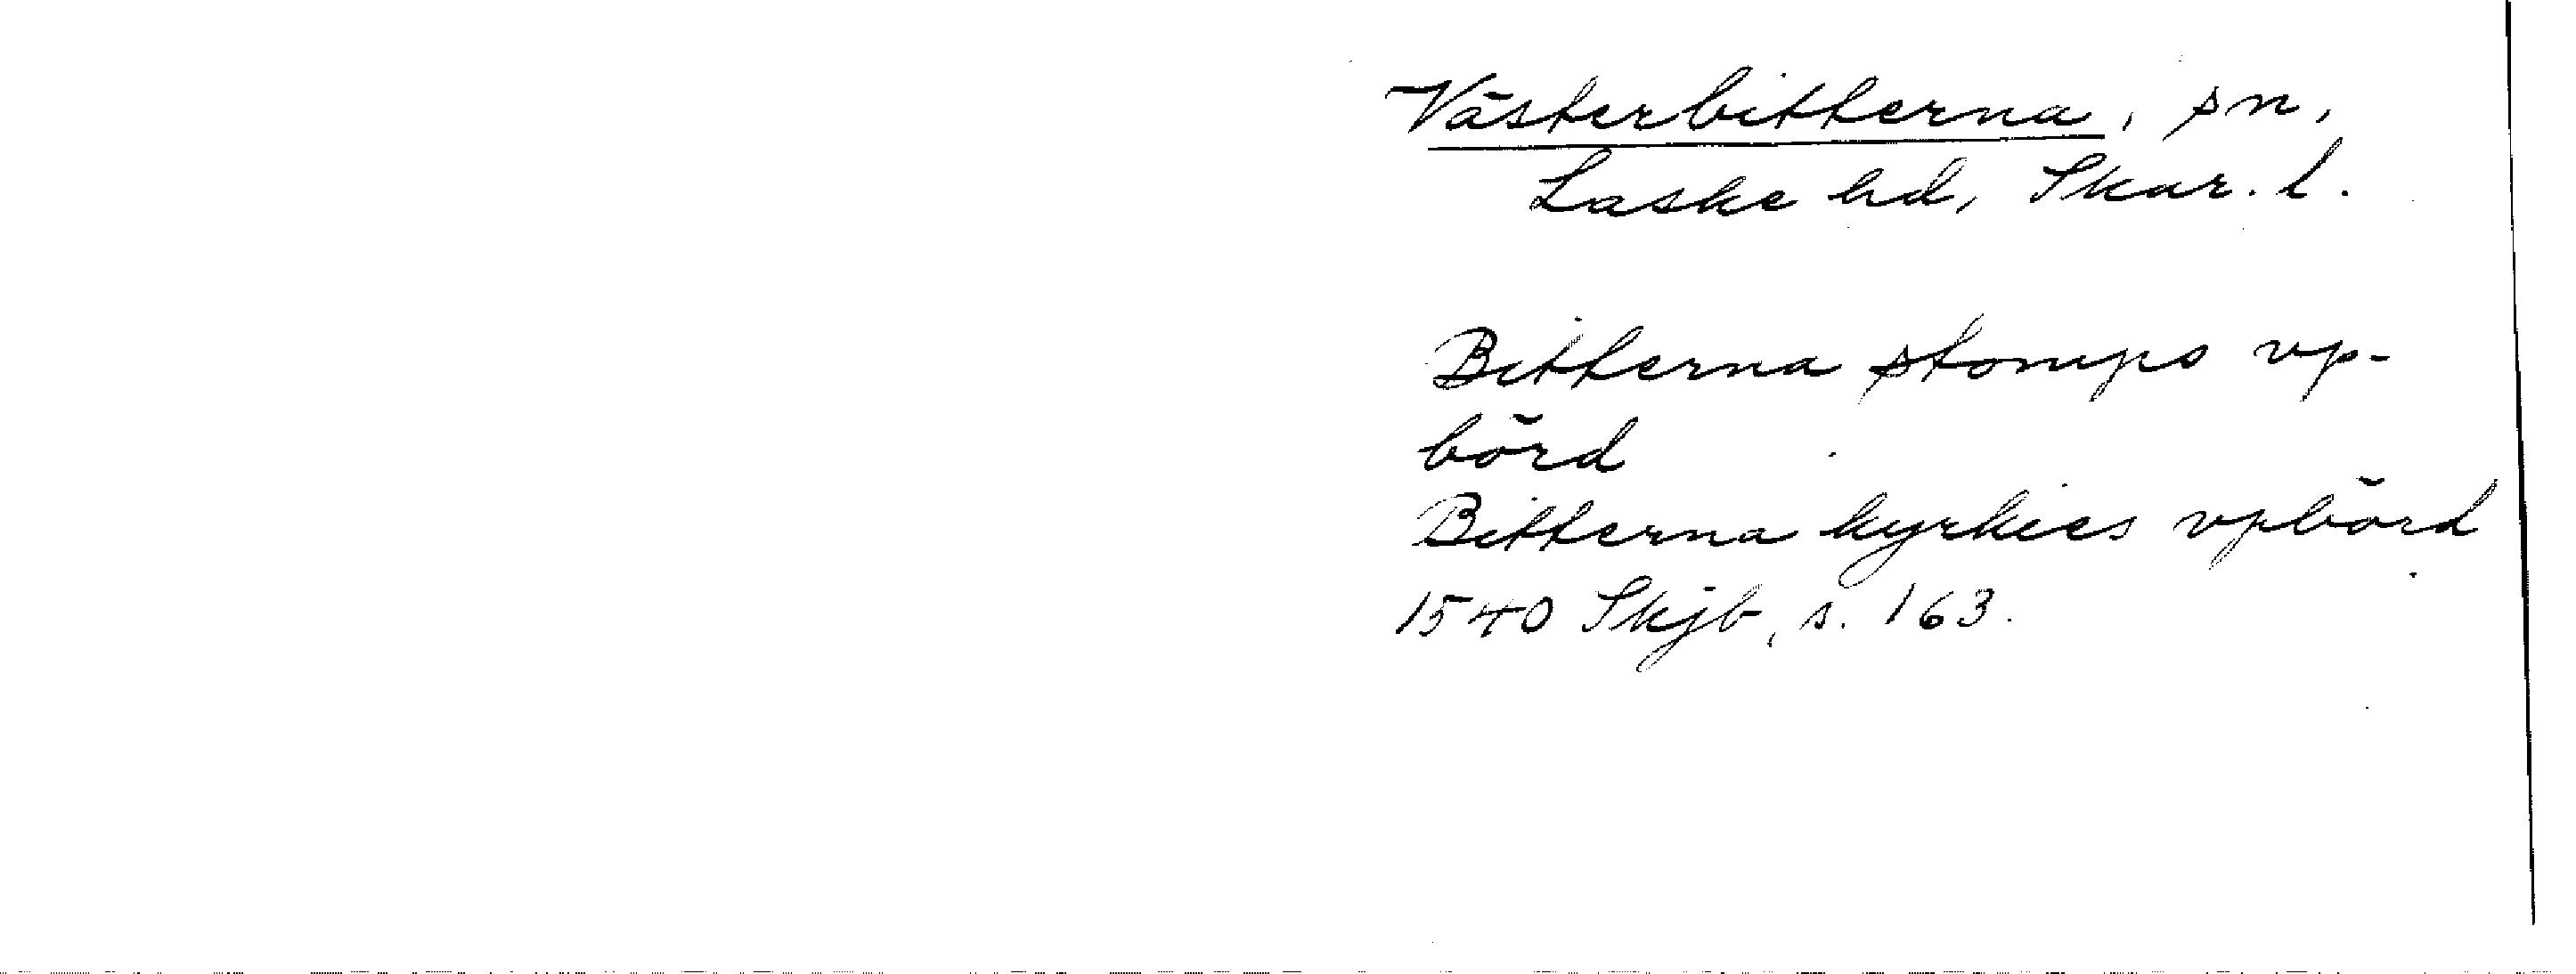 Västerbitterna, sn,
Laske hd, Skar. l.
Bitterna stomps vp-
börd
Bitterna kyrkies vpbörd
1540 Skjb, s. 163.